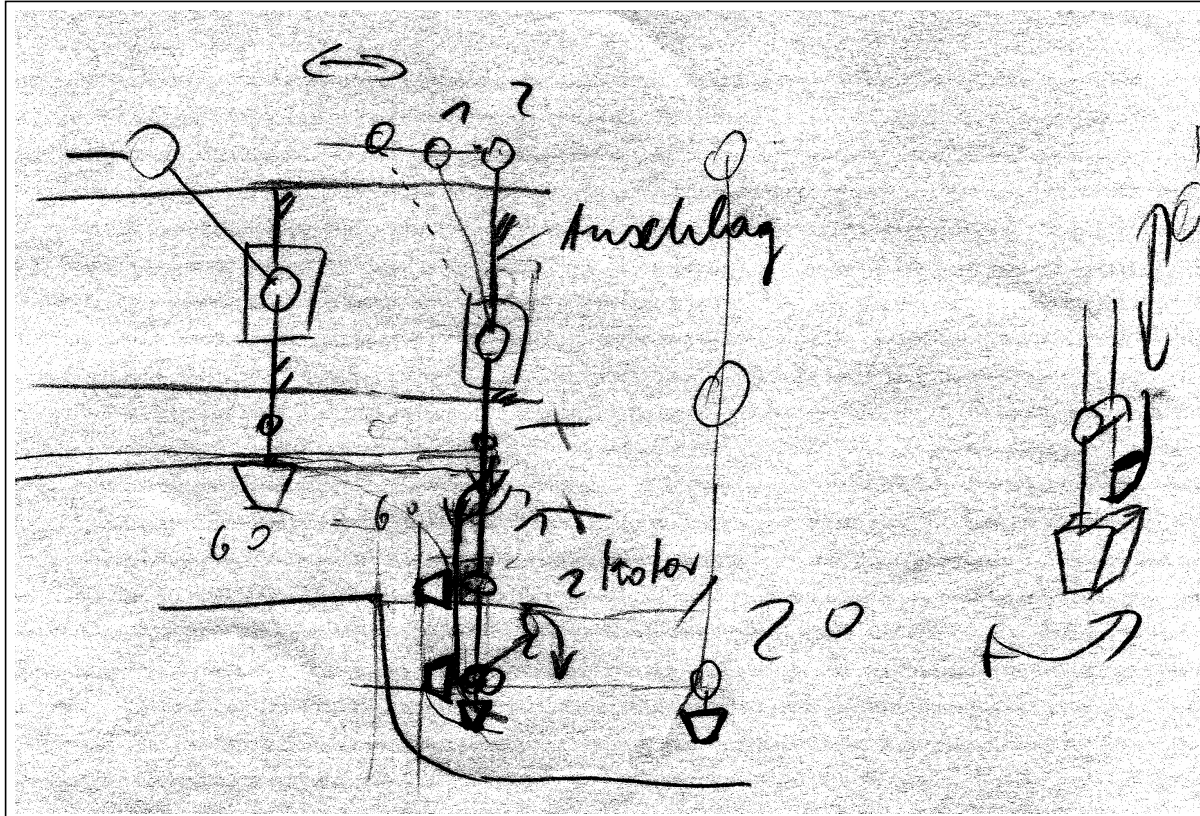 1 2
Anschlag
60 60
1
2 Motor
20